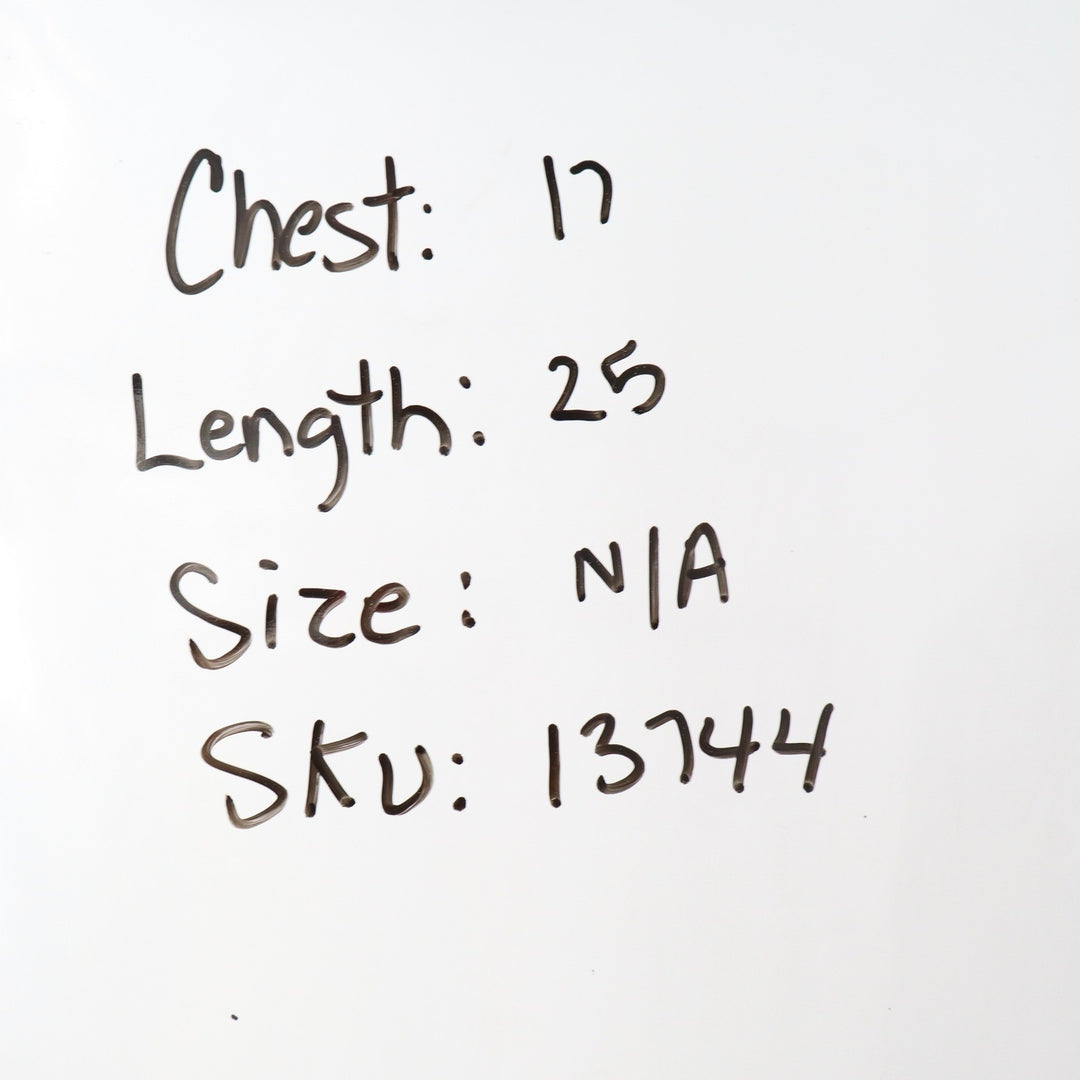 Chest: 17
Length: 25
Size: N/A
SKU: 13744